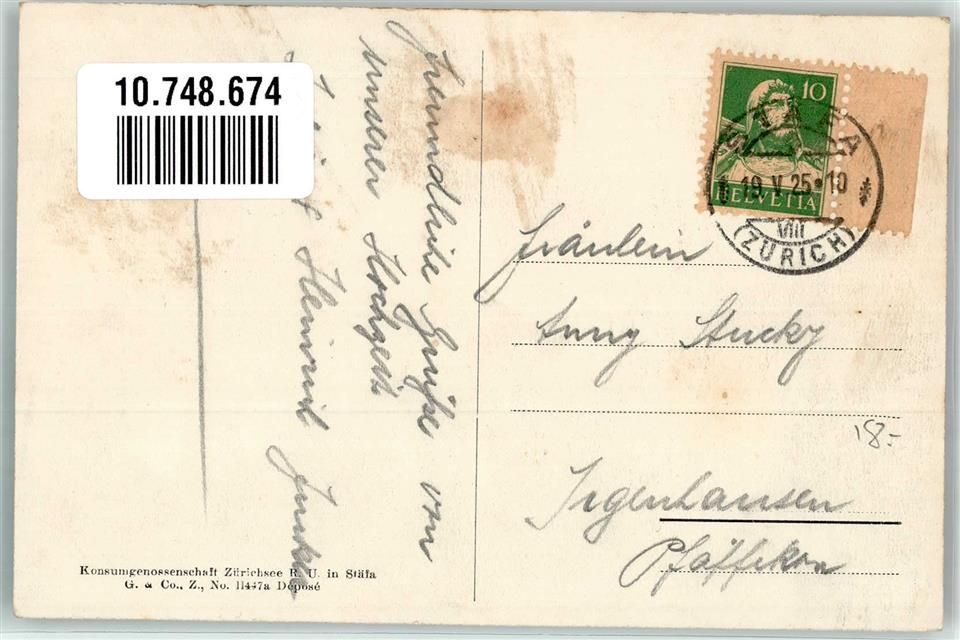 10.748.674
10
HELVETIA
STÄFA
19.V.25.10
VIII
(ZÜRICH)
Freundliche Grüße von
unserer Hochzeit
Heinrich
Fräulein
Anny Stucky
Irgenhausen
Pfäffikon
18.-
Konsumgenossenschaft Zürichsee R. U. in Stäfa
G. & Co., Z., No. 11447a Déposé